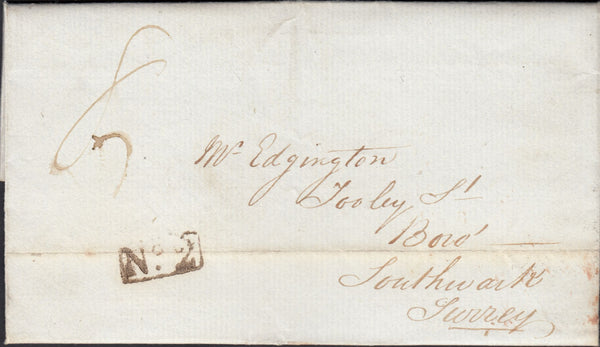 8
Mr Edgington
Tooley St
Boro'
Southwark
Surrey
No. 2